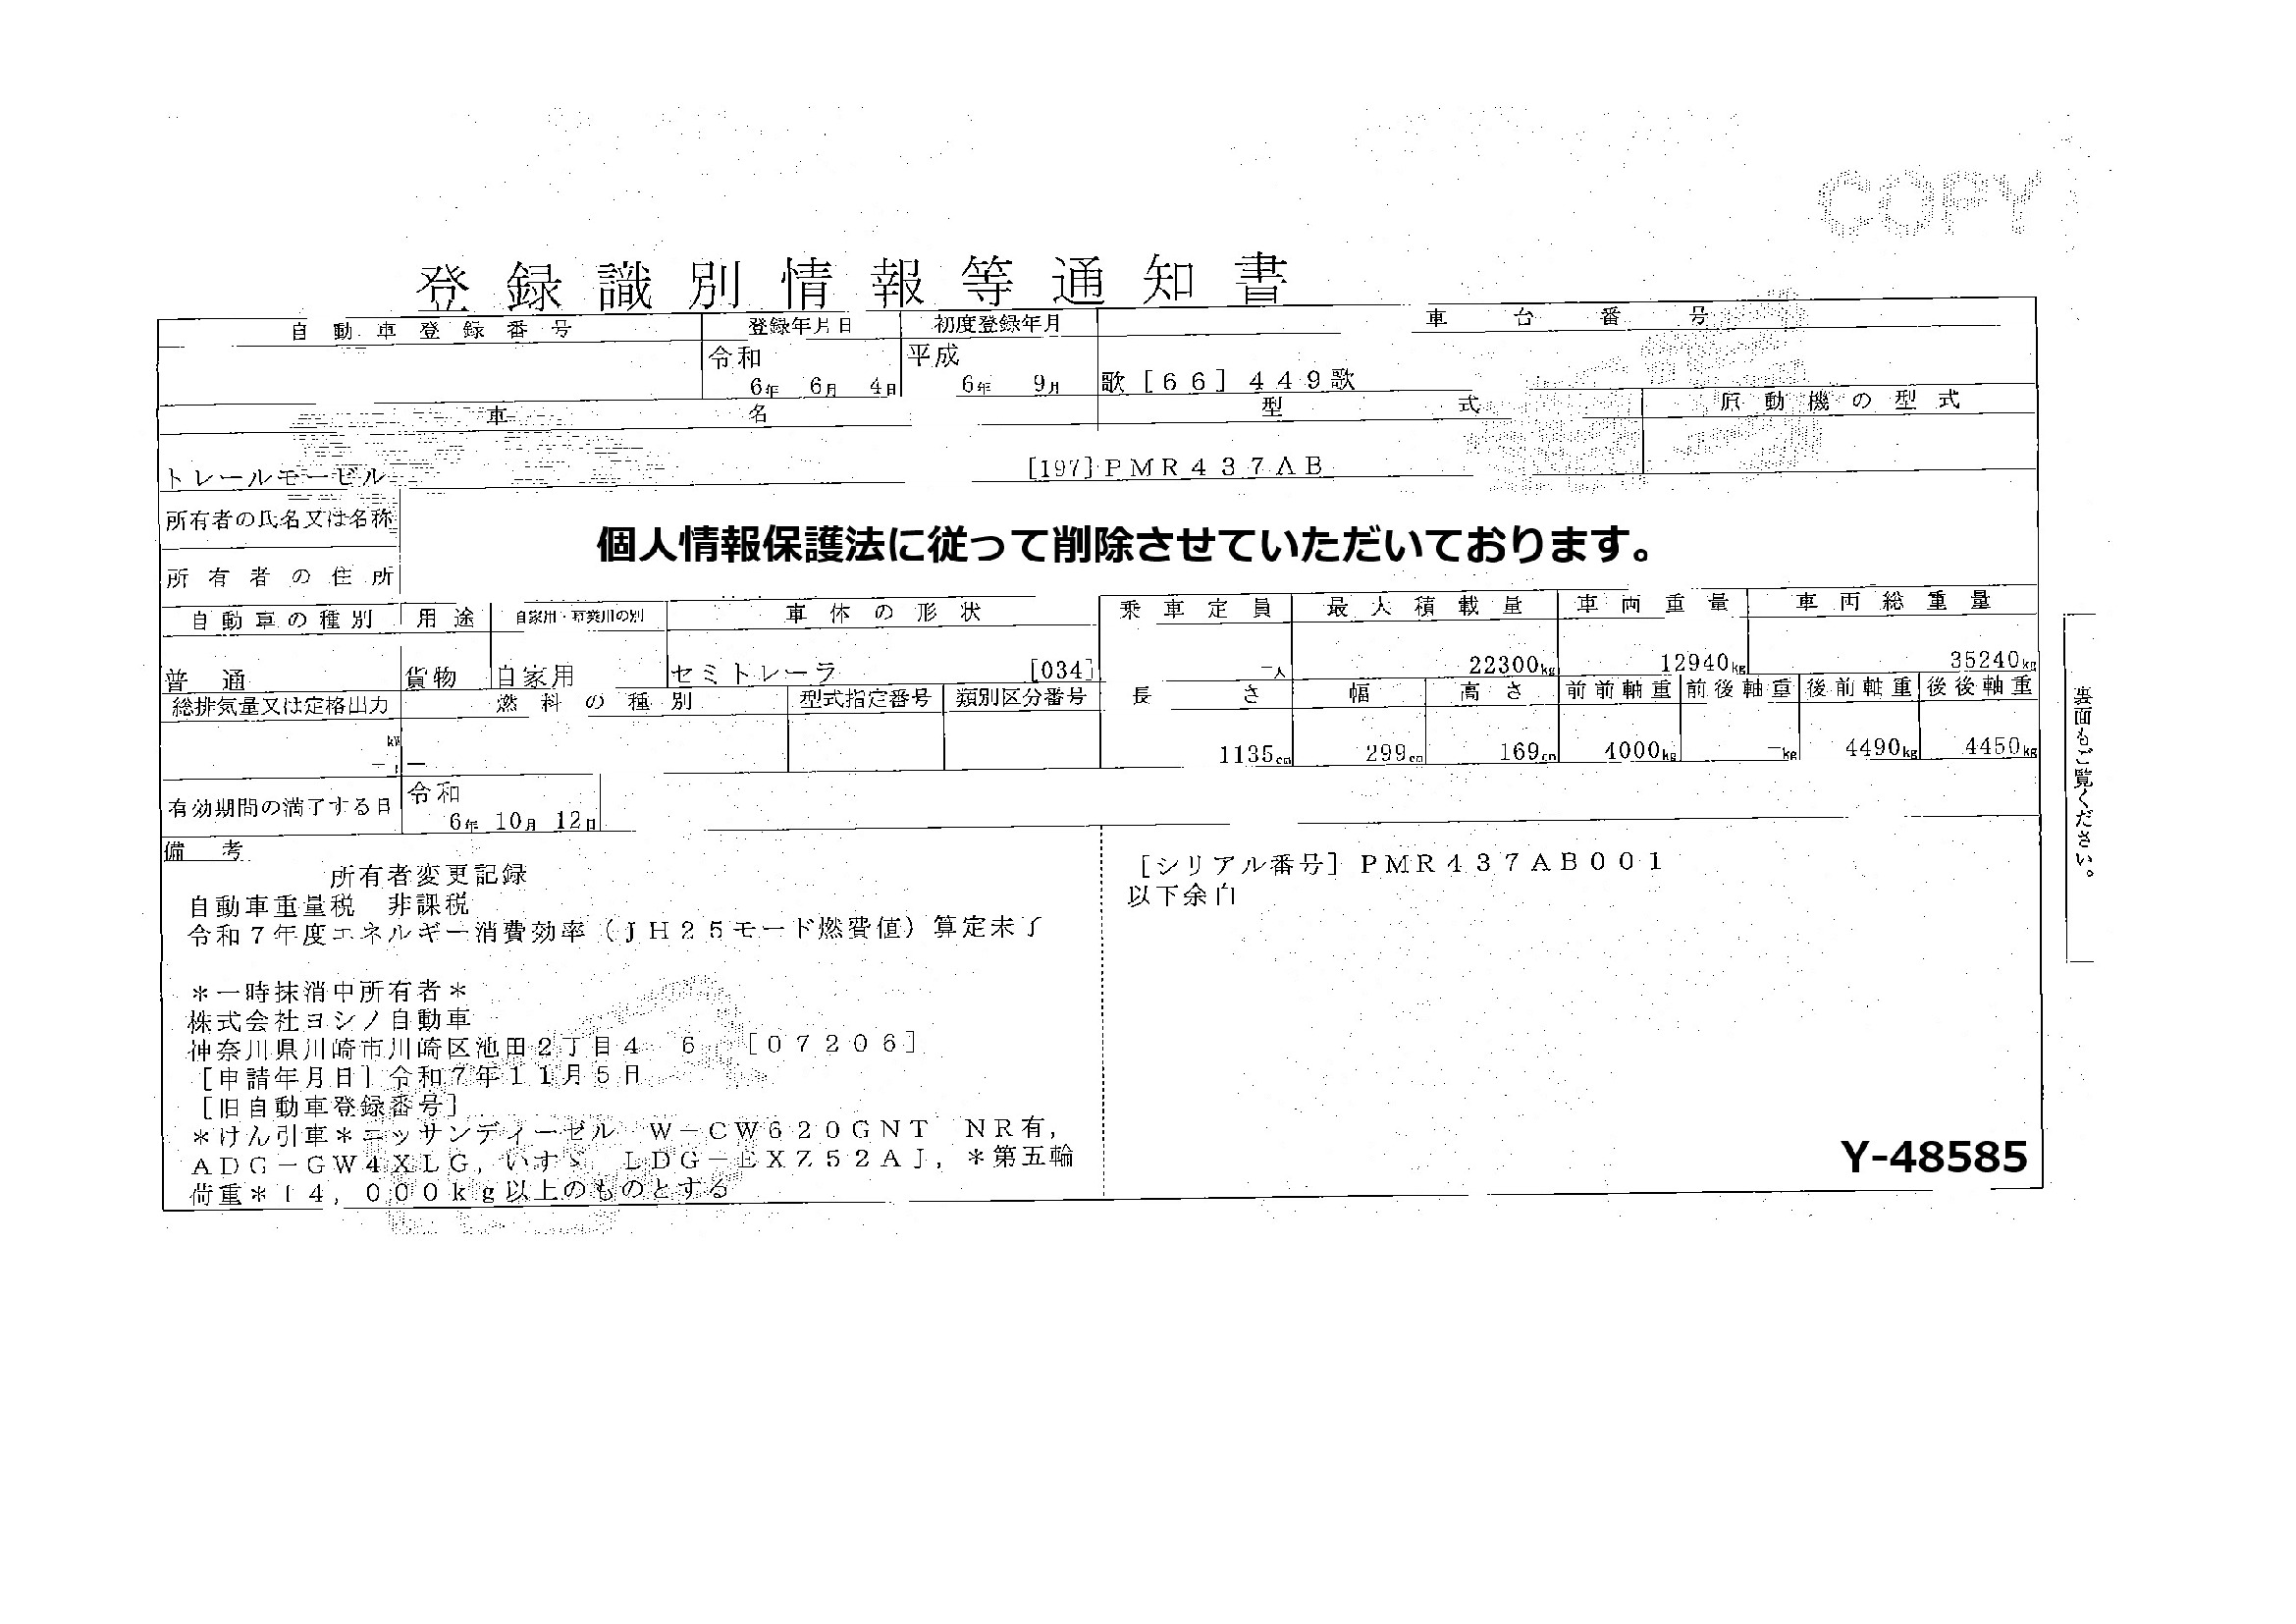 COPY
登録識別情報等通知書
自動車登録番号 登録年月日 初度登録年月 車台番号
令和 平成
6年 6月 4日 6年 9月 歌［66］449歌
車名 型式 原動機の型式
トレールモービル [197] PMR437AB
所有者の氏名又は名称
個人情報保護法に従って削除させていただいております。
所有者の住所
自動車の種別 用途 自家用・事業用の別 車体の形状 乗車定員 最大積載量 車両重量 車両総重量
普通 貨物 自家用 セミトレーラ [034] －人 22300kg 12940kg 35240kg
総排気量又は定格出力 燃料の種別 型式指定番号 類別区分番号 長さ 幅 高さ 前前軸重 前後軸重 後前軸重 後後軸重
kW
－ － 1135cm 299cm 169cm 4000kg －kg 4490kg 4450kg
有効期間の満了する日 令和
6年 10月 12日
備考
所有者変更記録
自動車重量税 非課税
令和7年度エネルギー消費効率（JH25モード燃費値）算定未了
＊一時抹消中所有者＊
株式会社ヨシノ自動車
神奈川県川崎市川崎区池田2丁目4 6 ［07206］
［申請年月日］令和7年11月5日
［旧自動車登録番号］
＊けん引車＊ニッサンディーゼル W－CW620GNT NR有，
ADG－GW4XLG，いすゞ LDG－EXZ52AJ，＊第五輪
荷重＊14，000kg以上のものとする
［シリアル番号］PMR437AB001
以下余白
Y-48585
裏面もご覧ください。